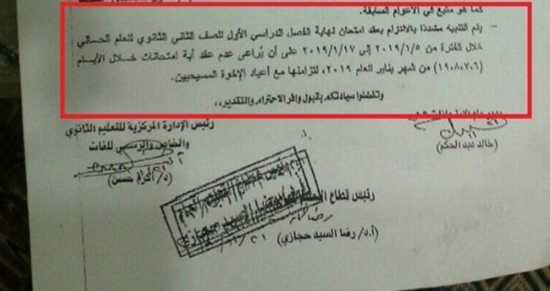 كما هو متبع في الأعوام السابقة.
- يتم التنبيه مشددًا بالالتزام بعقد امتحان نهاية الفصل الدراسي الأول للصف الثاني الثانوي للعام الحالي
خلال الفترة من ٢٠١٩/١/٥ إلى ٢٠١٩/١/١٧ على أن يُراعى عدم عقد أية امتحانات خلال الأيام
(١٩،٨،٧،٦) من شهر يناير للعام ٢٠١٩، لتزامنها مع أعياد الإخوة المسيحيين.
وتفضلوا سيادتكم بقبول وافر الاحترام والتقدير،،،
رئيس الإدارة المركزية للتعليم الثانوي
والخاص والرسمي للغات
(خالد عبد الحكم)
(د/ أكرم حسن)
رئيس قطاع
(أ.د/ رضا السيد حجازي)